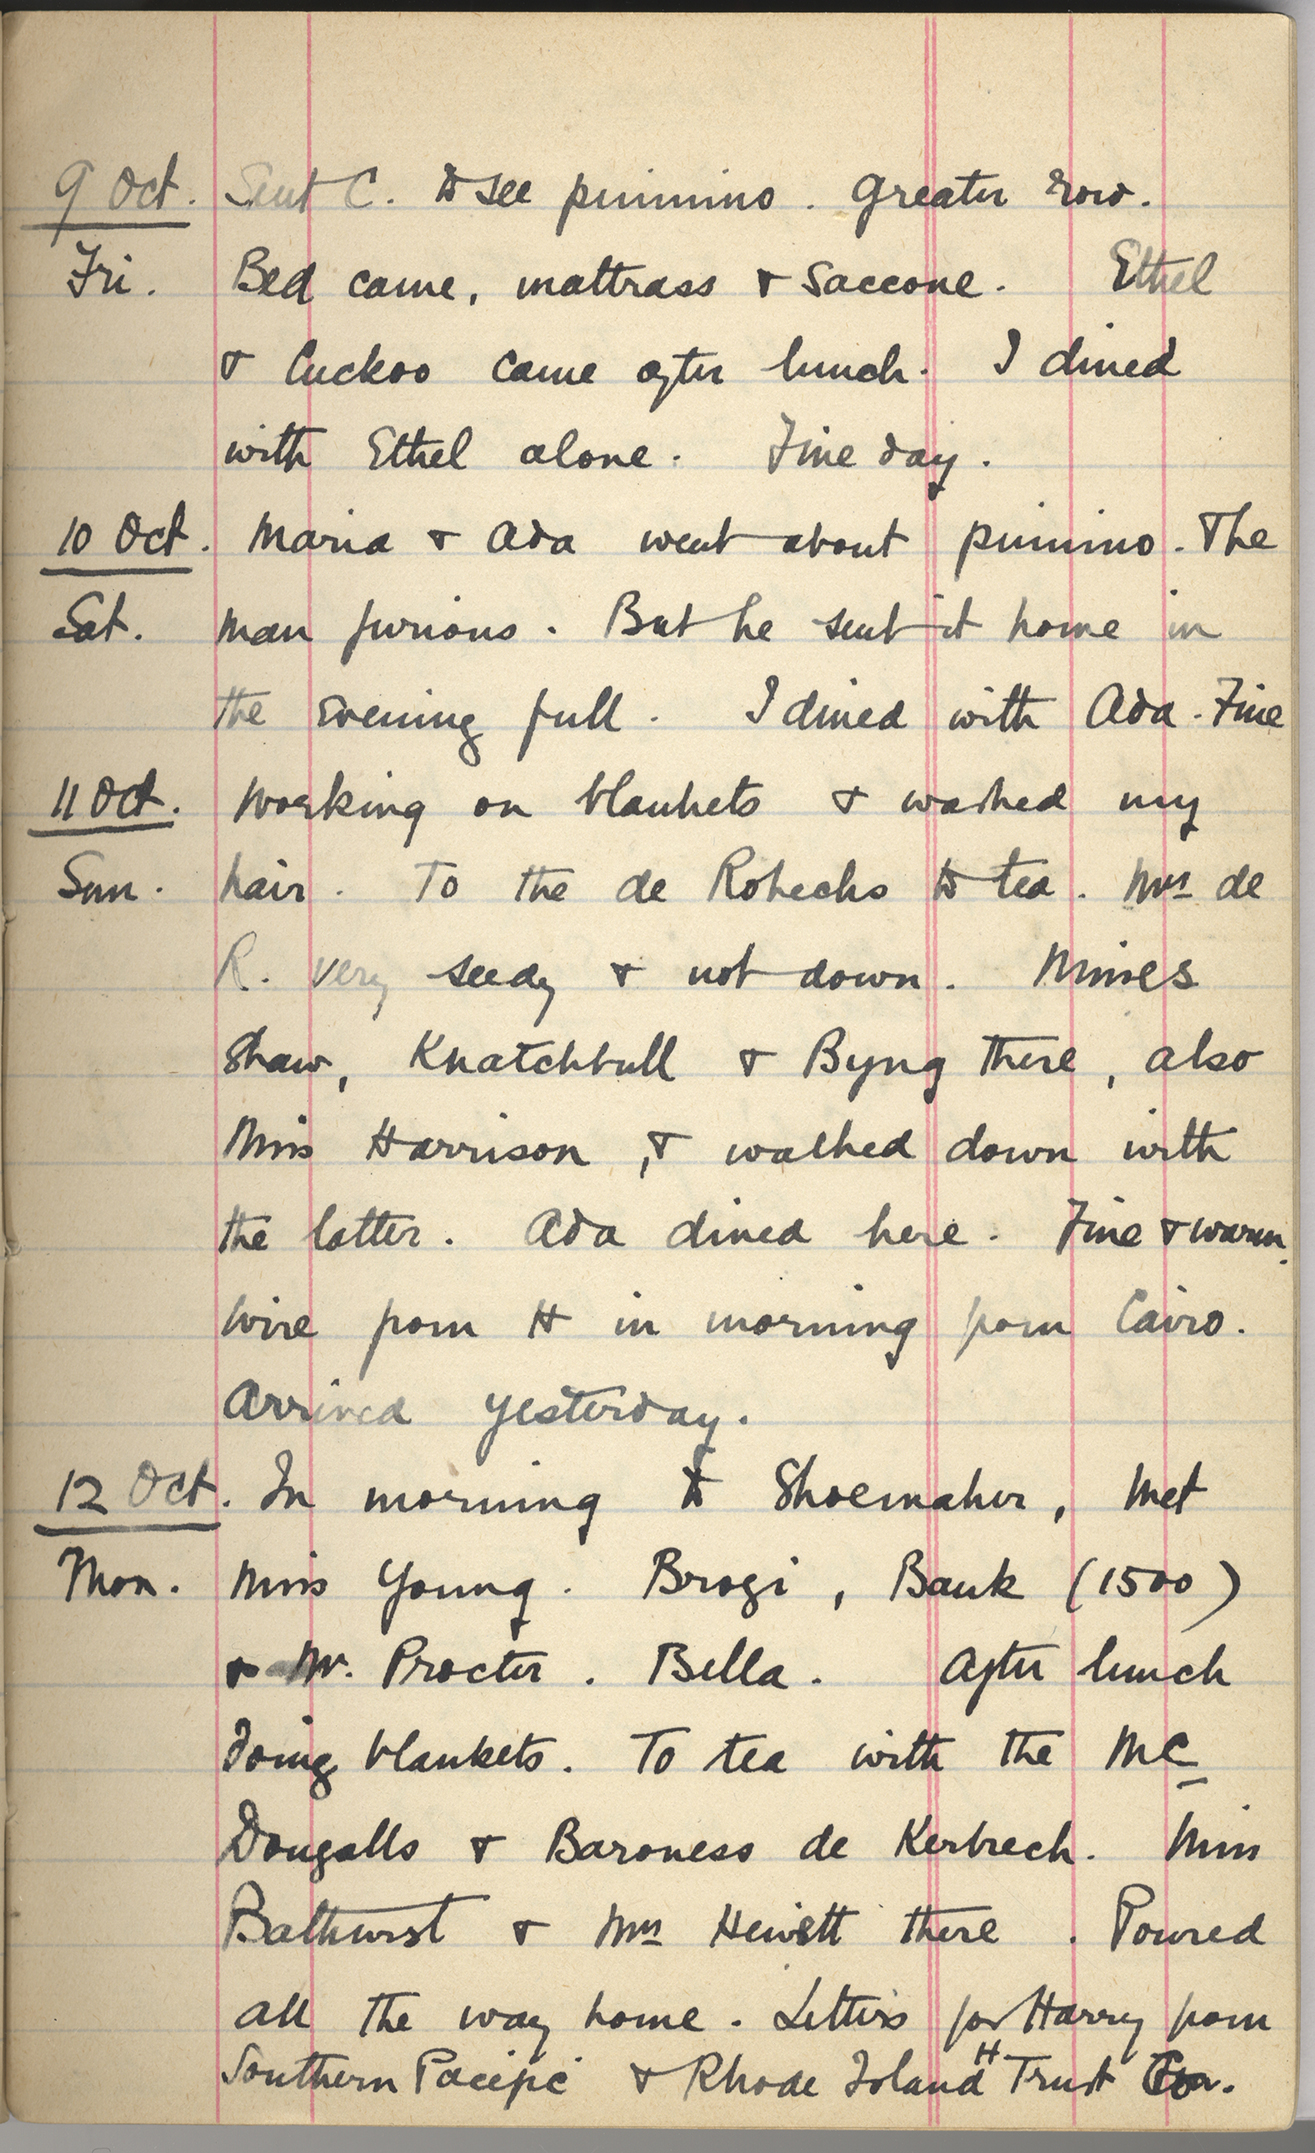 9 Oct. Sent C. to see piumino. Greater row.
Fri. Bed came, mattrass & saccone. Ethel
& Cuckoo came after lunch. I dined
with Ethel alone. Fine day.
10 Oct. Maria & Ada went about piumino. The
Sat. man furious. But he sent it home in
the evening full. I dined with Ada. Fine
11 Oct. Working on blankets & washed my
Sun. hair. To the de Robecks to tea. Mrs de
R. very seedy & not down. Misses
Shaw, Knatchbull & Byng there, also
Miss Harrison, & walked down with
the latter. Ada dined here. Fine & warm.
Wire from H in morning from Cairo.
Arrived yesterday.
12 Oct. In morning to Shoemaker, met
Mon. Miss Young. Brogi, Bank (1500)
& Mr. Procter. Bella. After lunch
doing blankets. To tea with the Mc
Dougalls & Baroness de Kerbrech. Miss
Bathurst & Mrs Hewett there. Poured
all the way home. Letters for Harry from
Southern Pacific & Rhode Island H Trust Co.